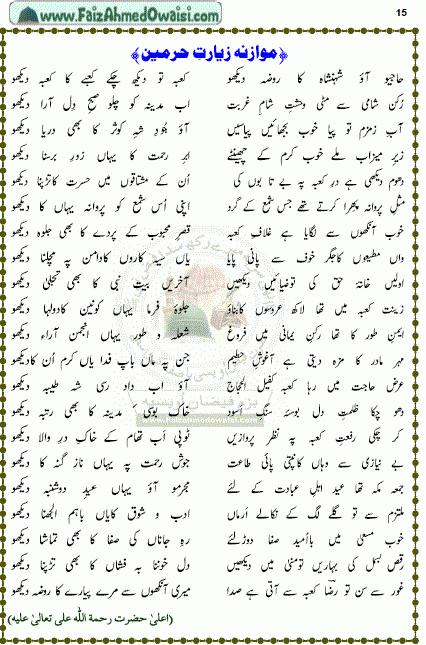 www.FaizAhmedOwaisi.com
15
﴿موازنہ زیارت حرمین﴾
حاجیو آؤ شہنشاہ کا روضہ دیکھو کعبہ تو دیکھ چکے کعبے کا کعبہ دیکھو
رکن شامی سے مٹی وحشتِ شامِ غربت اب مدینہ کو چلو صبحِ دل آرا دیکھو
آبِ زمزم تو پیا خوب بجھائیں پیاسیں آؤ جودِ شہِ کوثر کا بھی دریا دیکھو
زیرِ میزاب ملے خوب کرم کے چھینٹے ابرِ رحمت کا یہاں زور برسنا دیکھو
دھوم دیکھی ہے درِ کعبہ پہ بے تابوں کی اُن کے مشتاقوں میں حسرت کا تڑپنا دیکھو
مثلِ پروانہ پھرا کرتے تھے جس شمع کے گرد اپنی اُس شمع کو پروانہ یہاں کا دیکھو
خوب آنکھوں سے لگایا ہے غلافِ کعبہ قصرِ محبوب کے پردے کا بھی جلوہ دیکھو
واں مطیعوں کا جگر خوف سے پانی پایا یاں سیہ کاروں کا دامن پہ مچلنا دیکھو
اولیں خانۂ حق کی تو ضیائیں دیکھیں آخریں بیتِ نبی کا بھی تجلی دیکھو
زینتِ کعبہ میں تھا لاکھ عروسوں کا بناؤ جلوہ فرما یہاں کونین کا دولہا دیکھو
ایمنِ طور کا تھا رکنِ یمانی میں فروغ شعلۂ طور یہاں انجمن آراء دیکھو
مہرِ مادر کا مزہ دیتی ہے آغوشِ حطیم جن پہ ماں باپ فدا یاں کرم اُن کا دیکھو
عرضِ حاجت میں رہا کعبہ کفیل الحجاج آؤ اب داد رسی شہِ طیبہ دیکھو
دھو چکا ظلمتِ دل بوسۂ سنگِ اَسود خاک بوسی مدینہ کا بھی رتبہ دیکھو
کر چکی رفعتِ کعبہ پہ نظر پروازیں ٹوپی اَب تھام کے خاکِ درِ والا دیکھو
بے نیازی سے وہاں کانپتی پائی طاعت جوشِ رحمت پہ یہاں ناز گنہ کا دیکھو
جمعۂ مکہ تھا عید اہلِ عبادت کے لئے مجرمو آؤ یہاں عیدِ دوشنبہ دیکھو
ملتزم سے تو گلے لگ کے نکالے اَرماں ادب و شوق کا یاں باہم الجھنا دیکھو
خوب مسعیٰ میں بااُمیدِ صفا دوڑ لئے رہِ جاناں کی صفا کا بھی تماشا دیکھو
رقصِ بسمل کی بہاریں تو منیٰ میں دیکھیں دلِ خوننا بہ فشاں کا بھی تڑپنا دیکھو
غور سے سن تو رضا کعبہ سے آتی ہے صدا میری آنکھوں سے مرے پیارے کا روضہ دیکھو
(اعلیٰ حضرت رحمۃ اللہ علی تعالیٰ علیہ)
www.Faizahmedowaisi.com